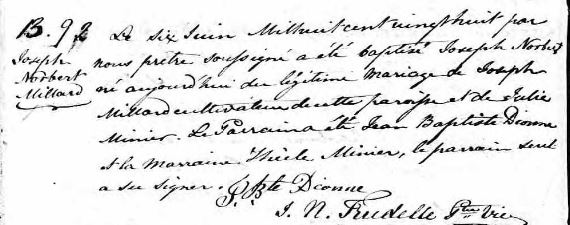 B. 92
Joseph
Norbert
Millard
Le six Juin Mil huit cent vingt huit par
nous prêtre soussigné a été baptisé Joseph Norbert
né aujourd'hui du légitime mariage de Joseph
Millard cultivateur de cette paroisse et de Julie
Minier. Le Parrain a été Jean Baptiste Dionne
et la marraine Thècle Minier, le parrain seul
a su signer. J. Bte Dionne
J. N. Trudelle Ptre Vic